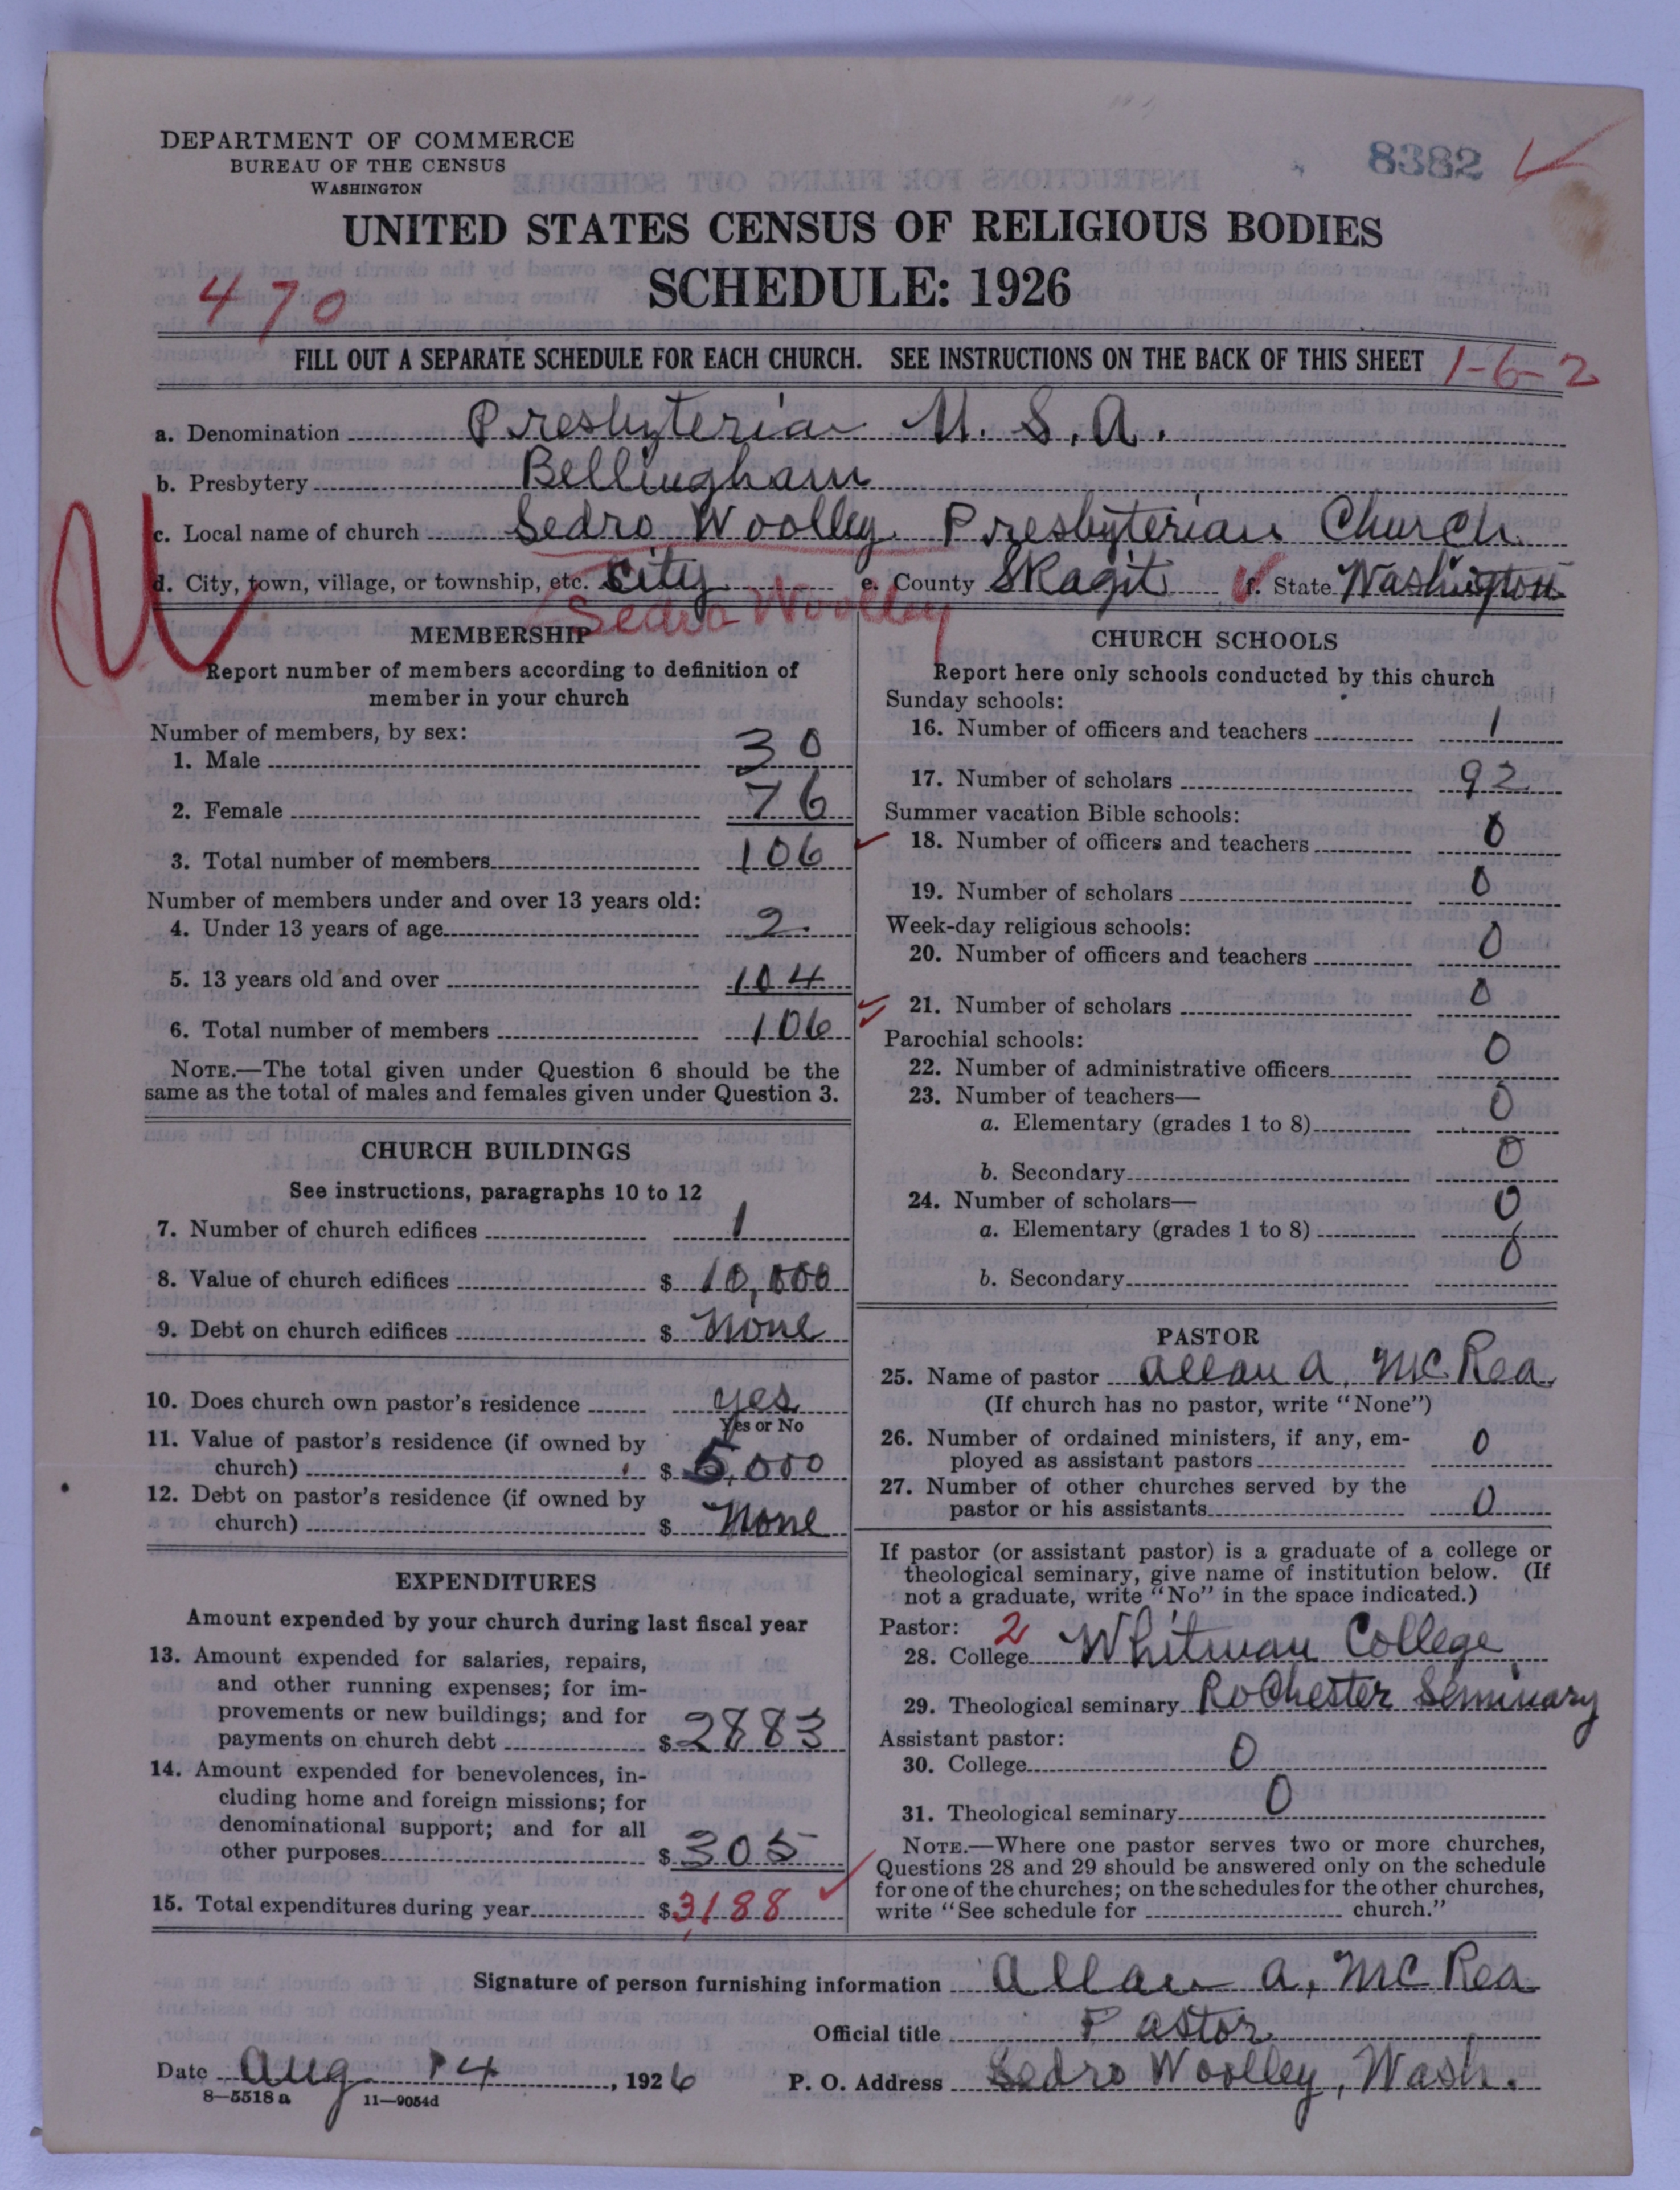 DEPARTMENT OF COMMERCE
BUREAU OF THE CENSUS
WASHINGTON
8382
UNITED STATES CENSUS OF RELIGIOUS BODIES
SCHEDULE: 1926
470
FILL OUT A SEPARATE SCHEDULE FOR EACH CHURCH. SEE INSTRUCTIONS ON THE BACK OF THIS SHEET
1-6-2
a. Denomination Presbyterian U. S. A.
b. Presbytery Bellingham
c. Local name of church Sedro Woolley Presbyterian Church
d. City, town, village, or township, etc. City e. County Skagit f. State Washington
Sedro Woolley
MEMBERSHIP
Report number of members according to definition of
member in your church
Number of members, by sex:
1. Male 30
2. Female 76
3. Total number of members 106
Number of members under and over 13 years old:
4. Under 13 years of age 2
5. 13 years old and over 104
6. Total number of members 106
NOTE.—The total given under Question 6 should be the
same as the total of males and females given under Question 3.
CHURCH BUILDINGS
See instructions, paragraphs 10 to 12
7. Number of church edifices 1
8. Value of church edifices $ 10,000
9. Debt on church edifices $ None
10. Does church own pastor's residence yes
Yes or No
11. Value of pastor's residence (if owned by
church) $ 5,000
12. Debt on pastor's residence (if owned by
church) $ None
EXPENDITURES
Amount expended by your church during last fiscal year
13. Amount expended for salaries, repairs,
and other running expenses; for im-
provements or new buildings; and for
payments on church debt $ 2883
14. Amount expended for benevolences, in-
cluding home and foreign missions; for
denominational support; and for all
other purposes $ 305
15. Total expenditures during year $ 3,188
CHURCH SCHOOLS
Report here only schools conducted by this church
Sunday schools:
16. Number of officers and teachers 1
17. Number of scholars 92
Summer vacation Bible schools:
18. Number of officers and teachers 0
19. Number of scholars 0
Week-day religious schools:
20. Number of officers and teachers 0
21. Number of scholars 0
Parochial schools:
22. Number of administrative officers 0
23. Number of teachers—
a. Elementary (grades 1 to 8) 0
b. Secondary 0
24. Number of scholars—
a. Elementary (grades 1 to 8) 0
b. Secondary 0
PASTOR
25. Name of pastor Allan A. McRea
(If church has no pastor, write "None")
26. Number of ordained ministers, if any, em-
ployed as assistant pastors 0
27. Number of other churches served by the
pastor or his assistants 0
If pastor (or assistant pastor) is a graduate of a college or
theological seminary, give name of institution below. (If
not a graduate, write "No" in the space indicated.)
Pastor: 2
28. College Whitman College
29. Theological seminary Rochester Seminary
Assistant pastor:
30. College 0
31. Theological seminary 0
NOTE.—Where one pastor serves two or more churches,
Questions 28 and 29 should be answered only on the schedule
for one of the churches; on the schedules for the other churches,
write "See schedule for church."
Signature of person furnishing information Allan A. McRea
Official title Pastor
Date Aug 14, 1926 P. O. Address Sedro Woolley, Wash.
8—5518 a 11—9054d